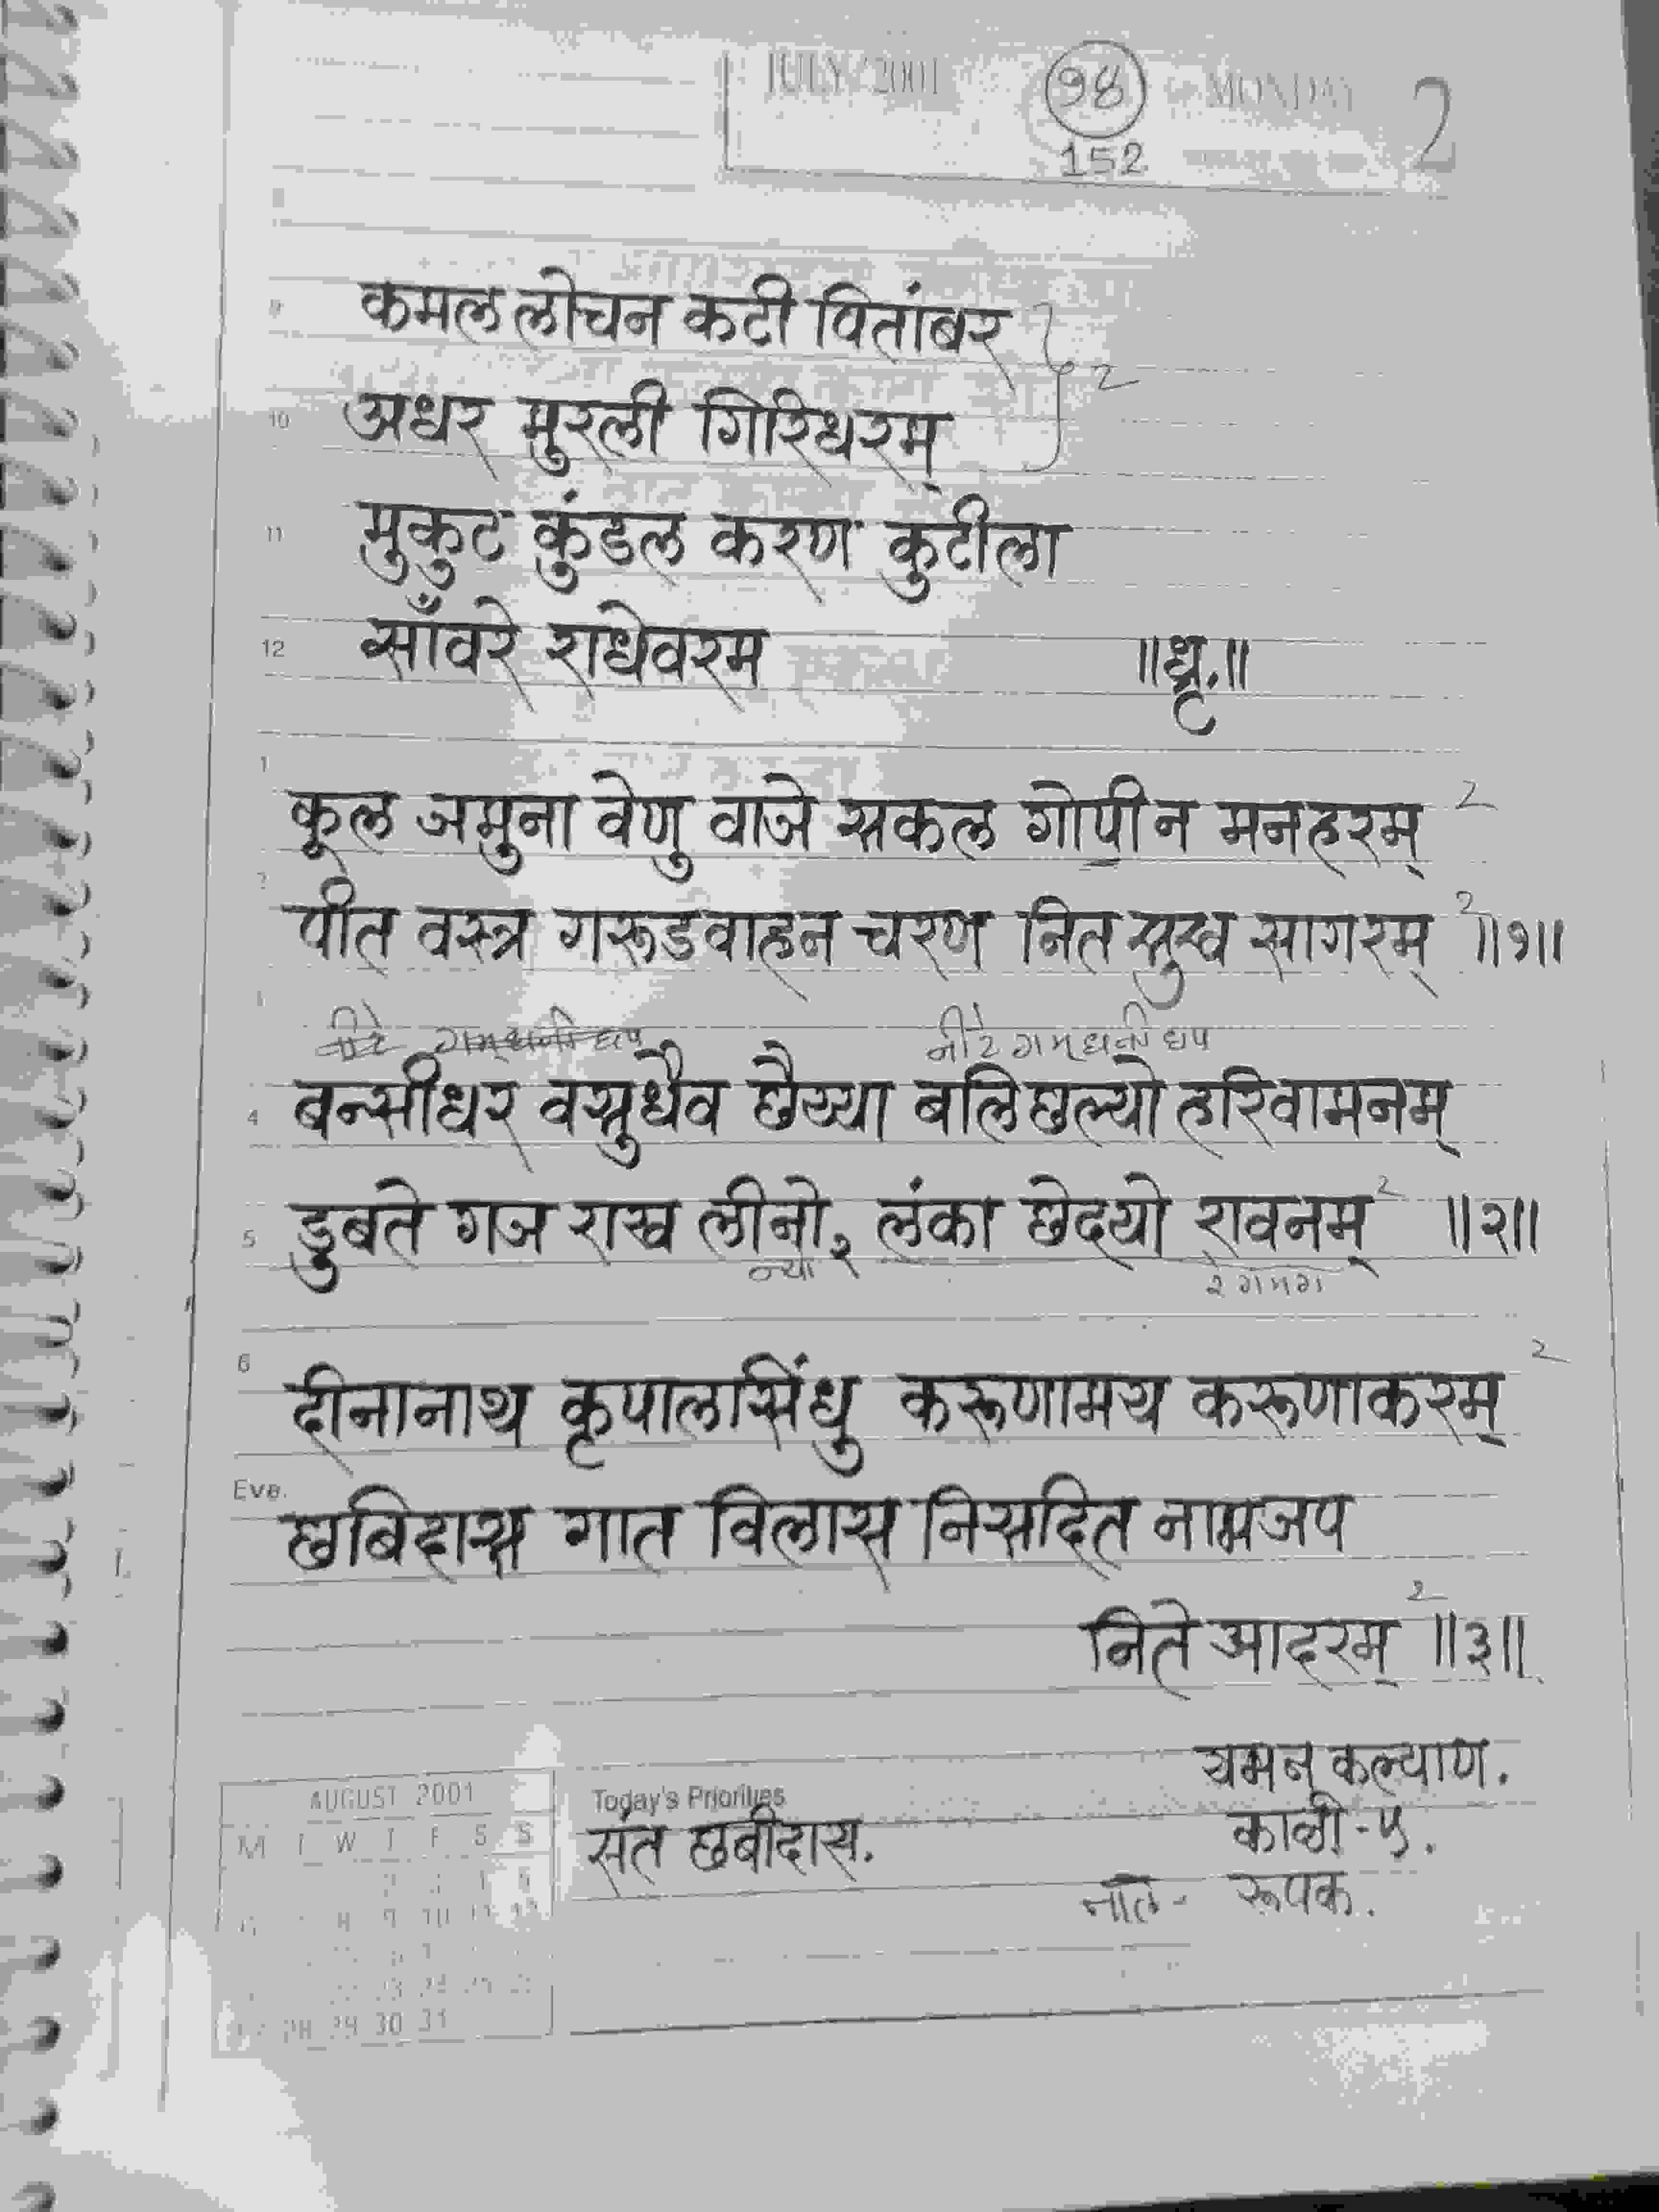 JULY / 2001 १४ MONDAY 2
152
9 कमल लोचन कटी पितांबर
2
10 अधर मुरली गिरिधरम्
11 मुकुट कुंडल करण कुटीला
12 साँवरे राधेवरम ॥धृ.॥
1
कूल जमुना वेणु वाजे सकल गोपीन मनहरम् 2
2
पीत वस्त्र गरूडवाहन चरण नित सुख सागरम् 2 ॥१॥
नी रे गम्धनी धप
4 बन्सीधर वसुधैव छैय्या बलिछल्यो हरिवामनम्
5 डुबते गज राख लीनो २ लंका छेदयो रावनम् 2 ॥२॥
न्यो रे गमग
6 दीनानाथ कृपालसिंधु करूणामय करूणाकरम् 2
Eve. छबिदास गात विलास निसदित नामजप
निते आदरम् 2 ॥३॥
यमन कल्याण.
AUGUST 2001 Today's Priorities
M T W T F S S संत छबीदास. काळी-५.
रूपक.
28 29 30 31